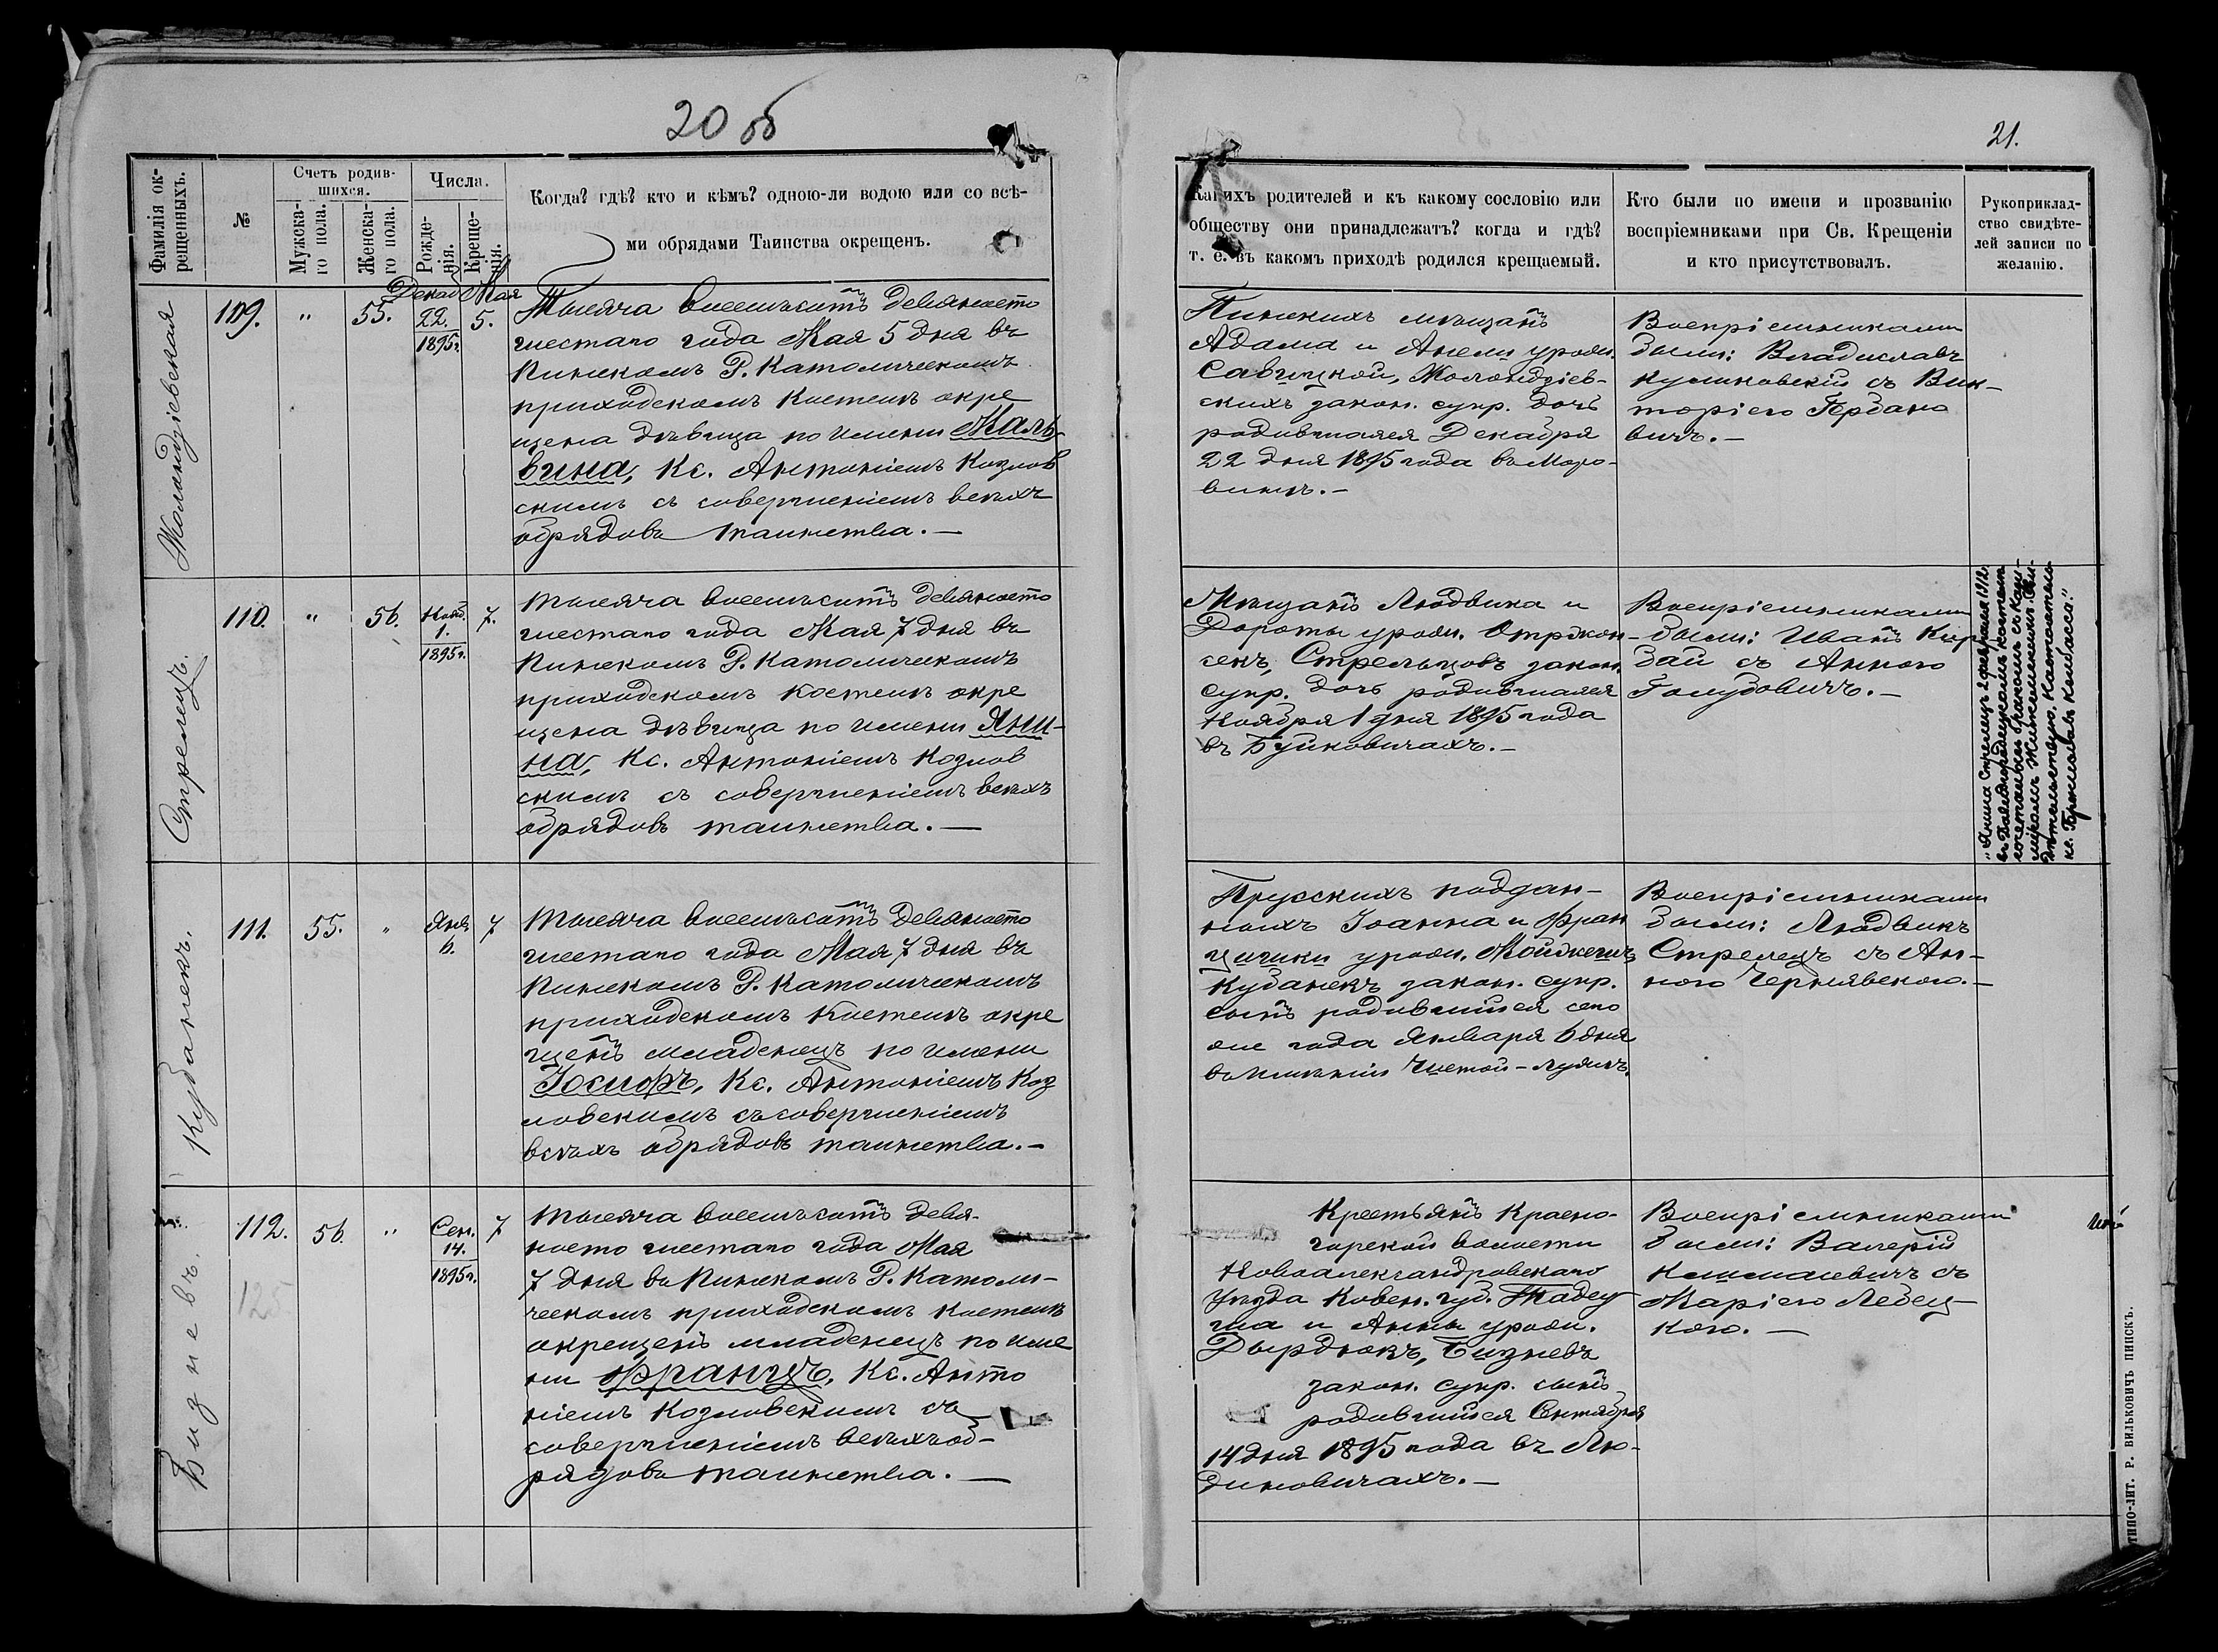 20 об
21.
Фамилія ок-
рещенныхъ.
№
Счетъ родив-
шихся.
Мужска-
го пола.
Женска-
го пола.
Числа.
Рожде-
нія.
Креще-
нія.
Когда? гдѣ? кто и кѣмъ? одною-ли водою или со всѣ-
ми обрядами Таинства окрещенъ.
Какихъ родителей и къ какому сословію или
обществу они принадлежатъ? когда и гдѣ?
т. е. въ какомъ приходѣ родился крещаемый.
Кто были по имени и прозванію
воспріемниками при Св. Крещеніи
и кто присутствовалъ.
Рукоприклад-
ство свидѣте-
лей записи по
желанію.
Жоландзіевская
109.
"
55.
Декаб
22.
1895г.
Мая
5.
Тысяча восемьсотъ девяносто
шестаго года Мая 5 дня въ
Пинскомъ Р. Католическомъ
приходскомъ костелѣ окре
щена дѣвица по имени Маль-
вина, Кс. Антоніемъ Козлов
скимъ съ совершеніемъ всѣхъ
обрядовъ таинства.—
Пинскихъ мѣщанъ
Адама и Анели урожд.
Савицкой, Жоландзіев-
скихъ закон. супр. дочь
родившаяся Декабря
22 дня 1895 года въ Моро-
винѣ.—
Воспріемниками
были: Владиславъ
Куликовскій съ Вик-
торіею Гербано
вичъ.—
Стрелецъ.
110.
"
56.
Нояб.
1.
1895г.
7.
Тысяча восемьсотъ девяносто
шестаго года Мая 7 дня въ
Пинскомъ Р. Католическомъ
приходскомъ костелѣ окре
щена дѣвица по имени Яни-
на, Кс. Антоніемъ Козлов
скимъ съ совершеніемъ всѣхъ
обрядовъ таинства.—
Мѣщанъ Людвика и
Дороты урожд. Отржон-
секъ, Стрельцовъ закон.
супр. дочь родившаяся
Ноября 1 дня 1895 года
въ Буйновичахъ.—
Воспріемниками
были: Иванъ Кир
бай съ Анною
Голубовичъ.—
"Янина Стрелецъ 2 февраля 1912
въ Давидгородецкомъ костелѣ
сочеталась бракомъ съ
кс. Брониславъ
Кубанекъ.
111.
55.
"
Янв.
6.
7
Тысяча восемьсотъ девяносто
шестаго года Мая 7 дня въ
Пинскомъ Р. Католическомъ
приходскомъ костелѣ окре
щенъ младенецъ по имени
Іосифъ, Кс. Антоніемъ Коз
ловскимъ съ совершеніемъ
всѣхъ обрядовъ таинства.—
Прусскихъ поддан-
ныхъ Іоанна и Фран
цишки урожд.
Кубанекъ закон. супр.
сынъ родившійся сего
же года Января 6 дня
въ имѣніи Чистой-Лужѣ.
Воспріемниками
были: Людвикъ
Стрелецъ съ Ан-
ною Чернявскою.—
Бизневъ.
112.
125
56.
"
Сен.
14.
1895г.
7
Тысяча восемьсотъ девя-
носто шестаго года Мая
7 дня въ Пинскомъ Р. Католи-
ческомъ приходскомъ костелѣ
окрещенъ младенецъ по име
ни Францъ, Кс. Анто
ніемъ Козловскимъ съ
совершеніемъ всѣхъ об-
рядовъ таинства.—
Крестьянъ Красно-
горской волости
Новоалександровскаго
Уѣзда Ковен. губ. Тадеу
ша и Анны урожд.
Дырдюкъ, Бизневъ
закон. супр. сынъ
родившійся Сентября
14 дня 1895 года въ Лю-
диновичахъ.—
Воспріемниками
были: Валерій
Климашевичъ съ
Маріею Лебец-
кою.—
ТИПО-ЛИТ. Р. ВИЛЬКОВИЧЪ ПИНСКЪ.